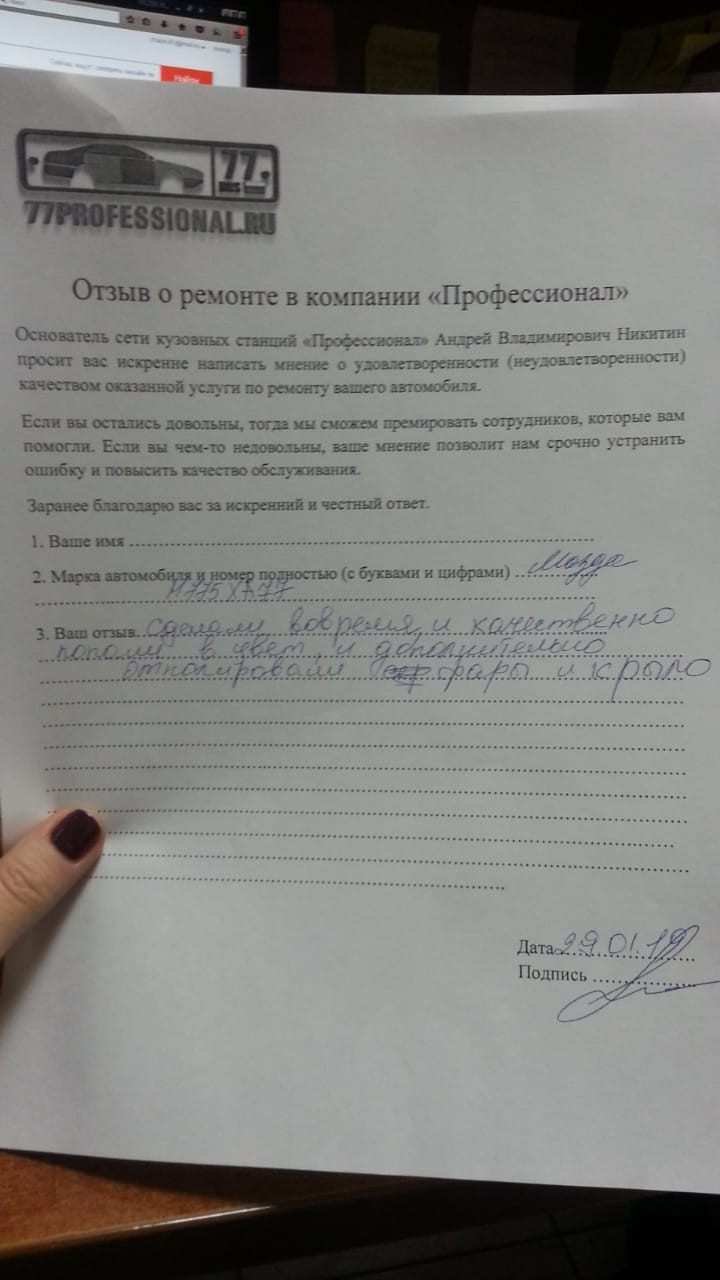 Найти
77
RUS
77PROFESSIONAL.RU
Отзыв о ремонте в компании «Профессионал»
Основатель сети кузовных станций «Профессионал» Андрей Владимирович Никитин
просит вас искренне написать мнение о удовлетворенности (неудовлетворенности)
качеством оказанной услуги по ремонту вашего автомобиля.
Если вы остались довольны, тогда мы сможем премировать сотрудников, которые вам
помогли. Если вы чем-то недовольны, ваше мнение позволит нам срочно устранить
ошибку и повысить качество обслуживания.
Заранее благодарю вас за искренний и честный ответ.
1. Ваше имя
2. Марка автомобиля и номер полностью (с буквами и цифрами) Мазда
3. Ваш отзыв. сделали вовремя и качественно
попали в цвет и дополнительно
отполировали фары и крыло
Дата 29.01.19
Подпись